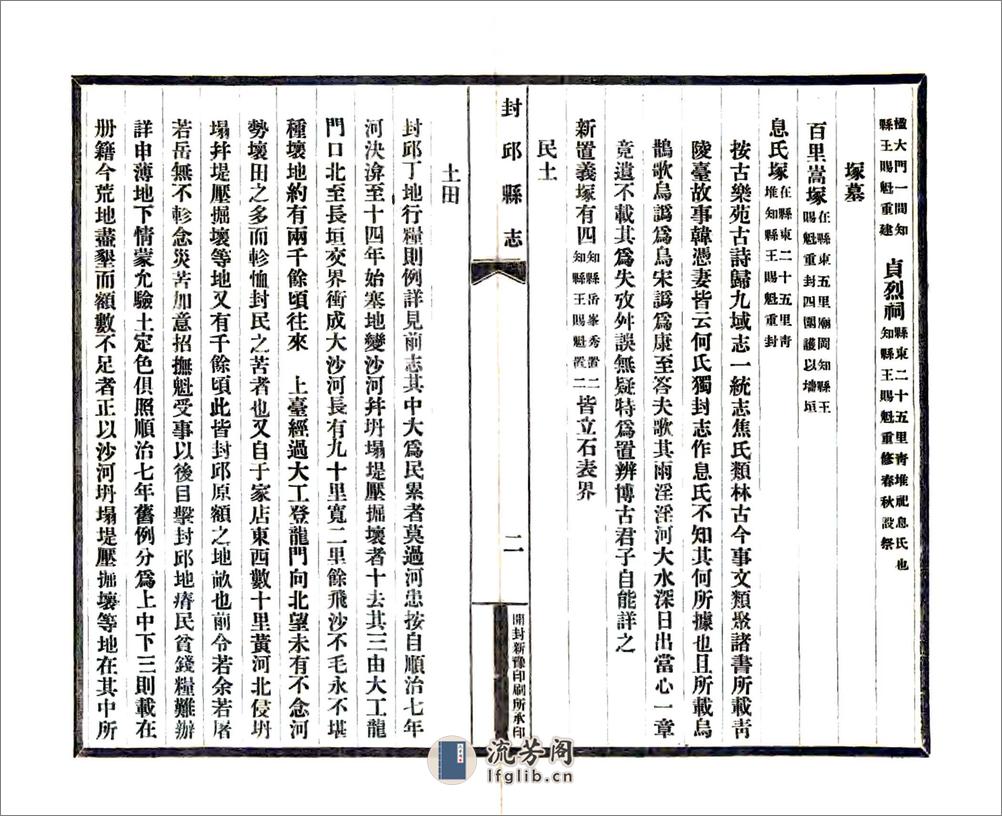 楹大門一間知縣王賜魁重建　貞烈祠縣東二十五里靑堆祀息氏也知縣王賜魁重修春秋設祭
塚墓
百里嵩塚在縣東五里廟岡知縣王賜魁重封四圍護以墻垣
息氏塚在縣東二十五里靑堆知縣王賜魁重封
按古樂苑古詩歸九域志一統志焦氏類林古今事文類聚諸書所載靑
陵臺故事韓憑妻皆云何氏獨封志作息氏不知其何所據也且所載烏
鵲歌烏譌爲鳥宋譌爲康至答夫歌其雨淫淫河大水深日出當心一章
竟遺不載其爲失攷舛誤無疑特爲置辨博古君子自能詳之
新置義塚有四知縣岳峯秀置二知縣王賜魁置二皆立石表界
民土
封邱縣志
二
開封新豫印刷所承印
土田
封邱丁地行糧則例詳見前志其中大爲民累者莫過河患按自順治七年
河決渰至十四年始塞地變沙河幷坍塌堤壓掘壞者十去其三由大工龍
門口北至長垣交界衝成大沙河長有九十里寬二里餘飛沙不毛永不堪
種壞地約有兩千餘頃往來　上臺經過大工登龍門向北望未有不念河
勢壞田之多而軫恤封民之苦者也又自于家店東西數十里黃河北侵坍
塌幷堤壓掘壞等地又有千餘頃此皆封邱原額之地畝也前令若余若屠
若岳無不軫念災苦加意招撫魁受事以後目擊封邱地瘠民貧錢糧難辦
詳申薄地下情蒙允驗土定色俱照順治七年舊例分爲上中下三則載在
册籍今荒地盡墾而額數不足者正以沙河坍塌堤壓掘壞等地在其中所
流芳阁
lfglib.cn